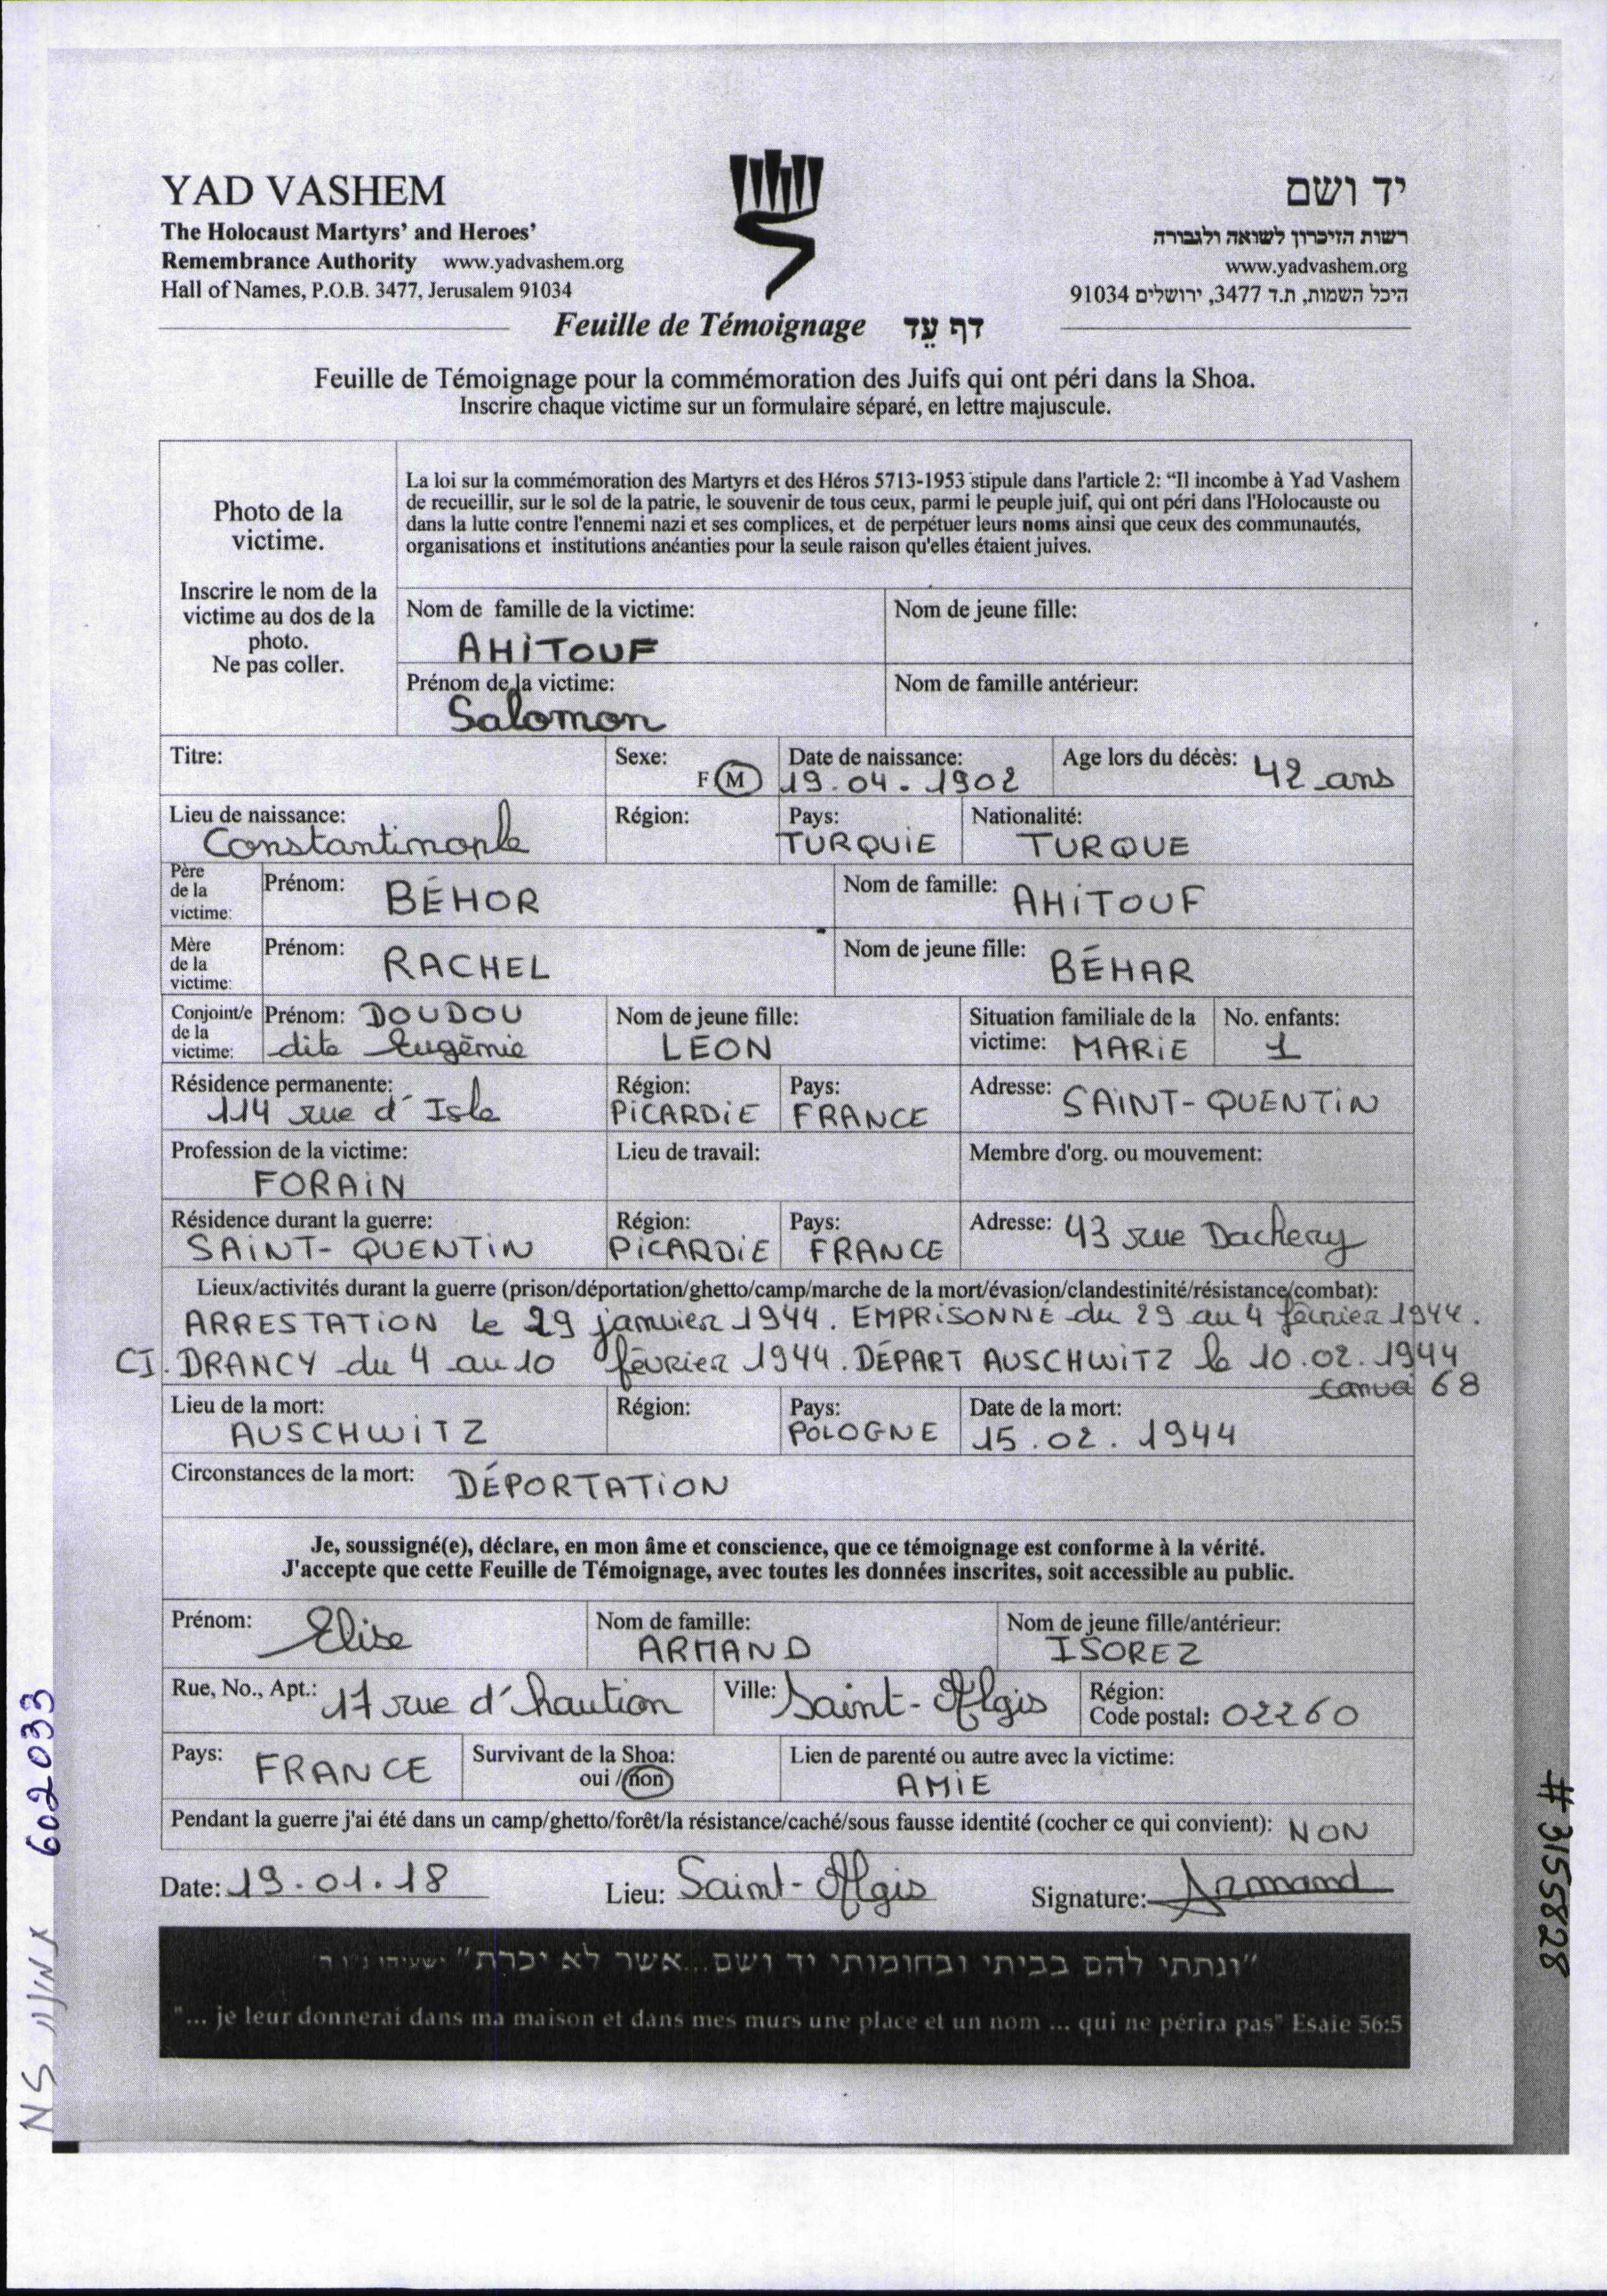 YAD VASHEM
The Holocaust Martyrs' and Heroes'
Remembrance Authority www.yadvashem.org
Hall of Names, P.O.B. 3477, Jerusalem 91034
יד ושם
רשות הזיכרון לשואה ולגבורה
www.yadvashem.org
היכל השמות, ת.ד 3477, ירושלים 91034
Feuille de Témoignage דף עֵד
Feuille de Témoignage pour la commémoration des Juifs qui ont péri dans la Shoa.
Inscrire chaque victime sur un formulaire séparé, en lettre majuscule.
Photo de la
victime.
Inscrire le nom de la
victime au dos de la
photo.
Ne pas coller.
La loi sur la commémoration des Martyrs et des Héros 5713-1953 stipule dans l'article 2: "Il incombe à Yad Vashem
de recueillir, sur le sol de la patrie, le souvenir de tous ceux, parmi le peuple juif, qui ont péri dans l'Holocauste ou
dans la lutte contre l'ennemi nazi et ses complices, et de perpétuer leurs noms ainsi que ceux des communautés,
organisations et institutions anéanties pour la seule raison qu'elles étaient juives.
Nom de famille de la victime: Nom de jeune fille:
AHITOUF
Prénom de la victime: Nom de famille antérieur:
Salomon
Titre: Sexe: F M Date de naissance: Age lors du décès: 42 ans
19.04.1902
Lieu de naissance: Région: Pays: Nationalité:
Constantinople TURQUIE TURQUE
Père
de la
victime:
Prénom: BÉHOR Nom de famille: AHITOUF
Mère
de la
victime:
Prénom: RACHEL Nom de jeune fille: BÉHAR
Conjoint/e
de la
victime:
Prénom: DOUDOU
dite Eugénie
Nom de jeune fille:
LEON
Situation familiale de la
victime: MARIE
No. enfants:
1
Résidence permanente: Région: Pays: Adresse: SAINT-QUENTIN
114 rue d'Isle PICARDIE FRANCE
Profession de la victime: Lieu de travail: Membre d'org. ou mouvement:
FORAIN
Résidence durant la guerre: Région: Pays: Adresse: 43 rue Dachery
SAINT-QUENTIN PICARDIE FRANCE
Lieux/activités durant la guerre (prison/déportation/ghetto/camp/marche de la mort/évasion/clandestinité/résistance/combat):
ARRESTATION le 29 janvier 1944. EMPRISONNÉ du 29 au 4 février 1944.
CI. DRANCY du 4 au 10 février 1944. DÉPART AUSCHWITZ le 10.02.1944
convoi 68
Lieu de la mort: Région: Pays: Date de la mort:
AUSCHWITZ POLOGNE 15.02.1944
Circonstances de la mort: DÉPORTATION
Je, soussigné(e), déclare, en mon âme et conscience, que ce témoignage est conforme à la vérité.
J'accepte que cette Feuille de Témoignage, avec toutes les données inscrites, soit accessible au public.
Prénom: Elise Nom de famille: Nom de jeune fille/antérieur:
ARMAND ISOREZ
Rue, No., Apt.: 17 rue d'haution Ville: Saint-Algis Région:
Code postal: 02260
Pays: FRANCE Survivant de la Shoa: Lien de parenté ou autre avec la victime:
oui / non AMIE
Pendant la guerre j'ai été dans un camp/ghetto/forêt/la résistance/caché/sous fausse identité (cocher ce qui convient): NON
Date: 19.01.18 Lieu: Saint-Algis Signature: Armand
"ונתתי להם בביתי ובחומותי יד ושם...אשר לא יכרת" ישעיהו נ"ו ה'
"... je leur donnerai dans ma maison et dans mes murs une place et un nom ... qui ne périra pas" Esaie 56:5
602033
#3155828